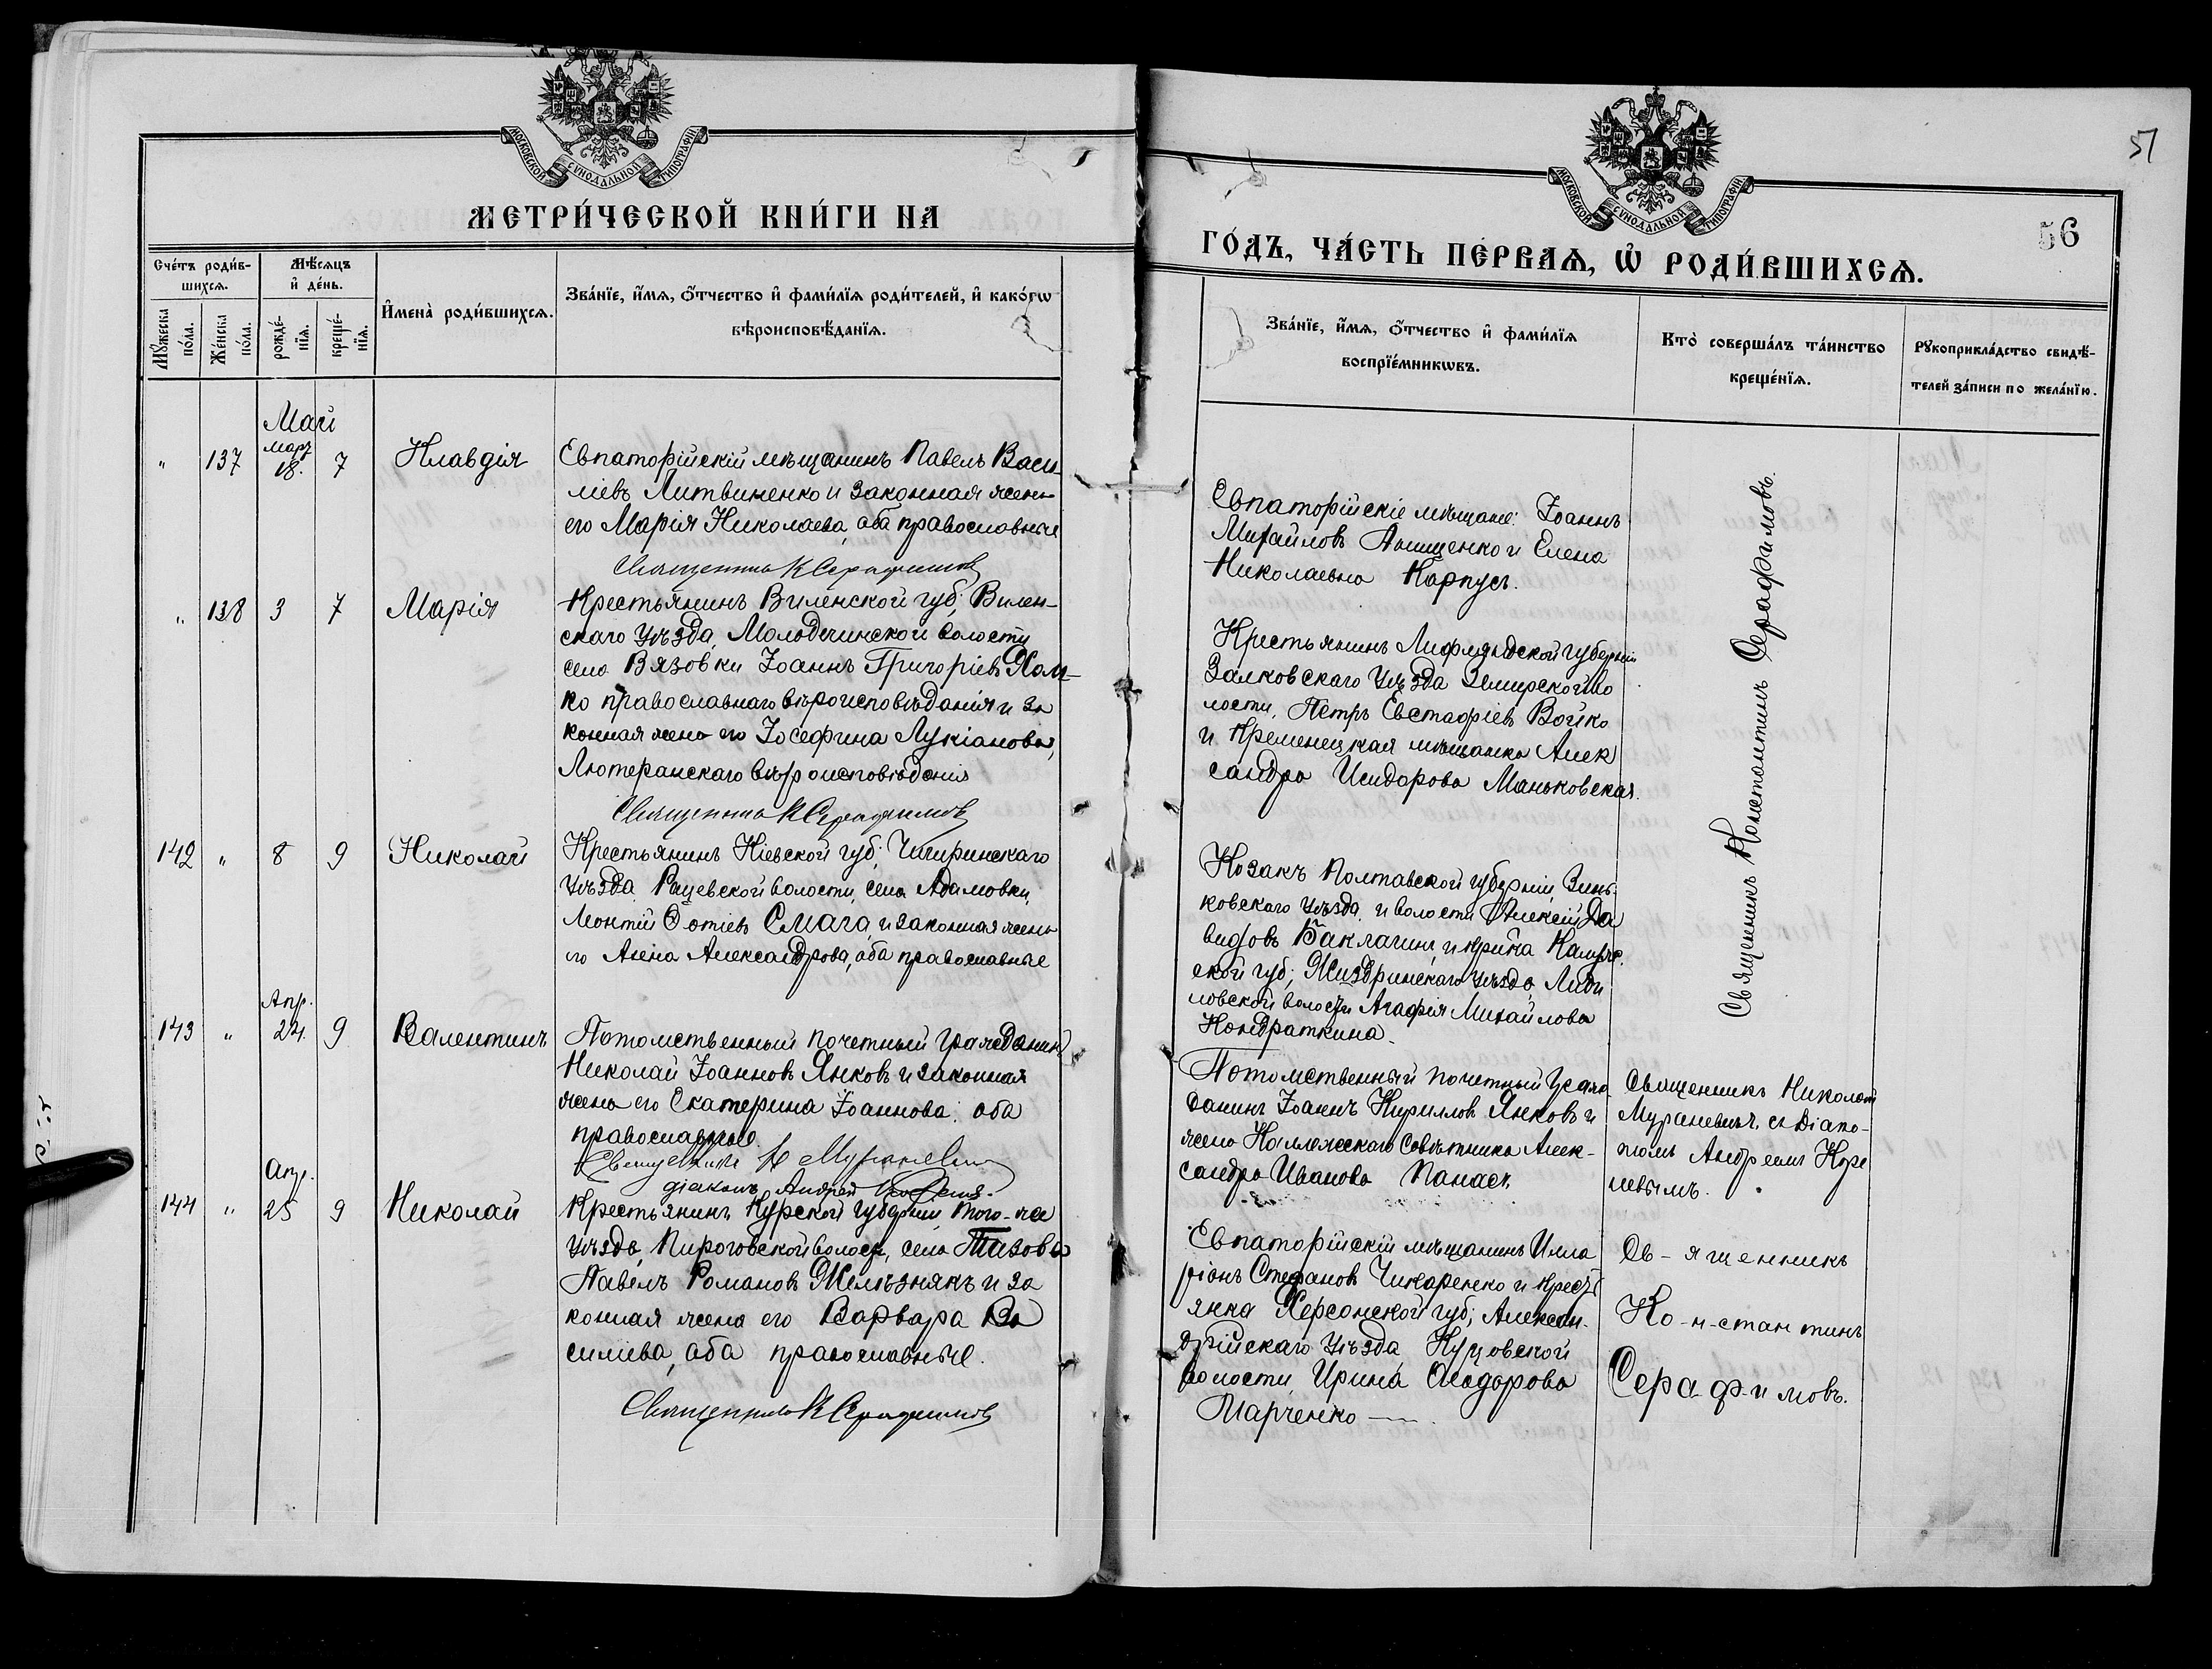 МОСКОВСКОЙ СѴНОДАЛЬНОЙ ТИПОГРАФІИ
МЕТРИ́ЧЕСКОЙ КНИ́ГИ НА
Сче́тъ роди́в-
шихсѧ.
Мѣ́сѧцъ
и҆ де́нь.
И҆мена̀ роди́вшихсѧ.
Зва́нїе, и҆́мѧ, ѻ҆́тчество и҆ фами́лїѧ роди́телей, и҆ како́гѡ
вѣроисповѣ́данїѧ.
Мꙋ́жеска
по́ла.
Же́нска
по́ла.
рожде́-
нїѧ.
креще́-
нїѧ.
Май
" 137 Мар. 18. 7 Клавдія
Евпаторійскій мѣщанинъ Павелъ Васи-
ліевъ Литвиненко и законная жена
его Марія Николаева, оба православные
Священникъ К Серафимовъ
" 138 3 7 Марія
Крестьянинъ Виленской губ., Вилен-
скаго уѣзда, Молодечинской волости
села Вязовки Іоаннъ Григоріевъ Хом-
ко православнаго вѣроисповѣданія и за
конная жена его Іосефина Лукіанова,
Лютеранскаго вѣроисповѣданія
Священникъ К Серафимовъ
142 " 8 9 Николай
Крестьянинъ Кіевской губ., Чигиринскаго
уѣзда, Рацевской волости, села Адамовки,
Леонтій Фотіевъ Смага, и законная жена
его Анна Александрова, оба православные
143 " Апр. 24. 9 Валентинъ
Потомственный почетный гражданинъ
Николай Іоанновъ Янковъ и законная
жена его Екатерина Іоаннова, оба
православные.
Священникъ Н Мураневичъ
діаконъ Андрей
144 " Апр. 25 9 Николай
Крестьянинъ Курской губерніи, того-же
уѣзда, Пироговской волости, села
Павелъ Романовъ Желѣзнякъ и за
конная жена его Варвара Ва
силіева, оба православные.
Священникъ К Серафимовъ
51
МОСКОВСКОЙ СѴНОДАЛЬНОЙ ТИПОГРАФІИ
56
ГО́ДЪ, ЧА́СТЬ ПЕ́РВАѦ, Ѡ҆ РОДИ́ВШИХСѦ.
Зва́нїе, и҆́мѧ, ѻ҆́тчество и҆ фами́лїѧ
воспрїе́мникѡвъ.
Кто̀ соверша́лъ та́инство
креще́нїѧ.
Рꙋкоприкла́дство свидѣ́-
телей за́писи по жела́нїю.
Евпаторійскіе мѣщане: Іоаннъ
Михайловъ Онищенко и Елена
Николаевна Карпусь.
Крестьянинъ Лифляндской губерніи
Валковскаго уѣзда во
лости, Петръ Евстафіевъ Войко
и Кременецкая мѣщанка Алек
сандра Исидорова Маньковская.
Козакъ Полтавской губерніи, Зинь-
ковскаго уѣзда и волости Алексій Да
видовъ Баклагинъ, и
ской губ., Жиздринскаго уѣзда,
ловской волости Агафія Михайлова
Кондраткина.
Священникъ Константинъ Серафимовъ.
Потомственный почетный граж
данинъ Іоаннъ Кирилловъ Янковъ и
жена Коллежскаго Совѣтника Алек-
сандра Иванова Панаси
Священникъ Николай
Мураневичъ съ Діако-
номъ Андреемъ Коре
невымъ.
Евпаторійскій мѣщанинъ Илла
ріонъ Стефановъ Чикаренко и крестьѣ
янка Херсонской губ., Алексан-
дрійскаго уѣзда, Куцовской
волости, Ирина Ѳеодорова
Марченко
Св-ященникъ
Ко-н-стантинъ
Сера-ф-имовъ.